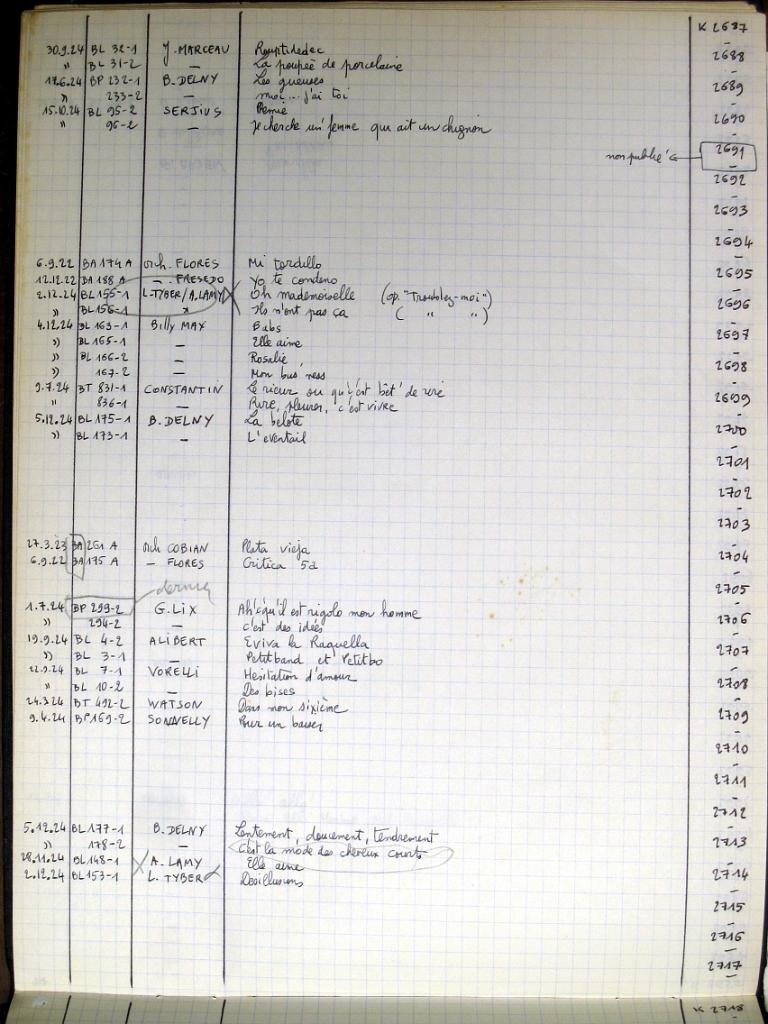 K 2687
30.9.24 BL 32-1 J. MARCEAU
" BL 31-2 — La poupée de porcelaine 2688
BP 232-1 B. DELNY Les gueuses 2689
" 233-2 — moi... j'ai toi
15.10.24 BL 95-2 SERJIUS 2690
" 96-2 — Je cherche un' femme qui ait un chignon
non publié 2691
2692
2693
2694
6.9.22 BA 174 A orch. FLORES Mi tordillo
12.12.22 BA 188 A — FRESEDO Yo te condeno 2695
2.12.24 BL 155-1 L. TYBER/A. LAMY Oh mademoiselle (op. "Troublez-moi")
" BL 156-1 " Ils n'ont pas ça ( " " ) 2696
4.12.24 BL 163-1 Billy MAX Babs
" BL 165-1 — Elle aime 2697
" BL 166-2 — Rosalie
" 167-2 — Mon bus'ness 2698
9.7.24 BT 831-1 CONSTANTIN Le rieur ou qu'c'est bêt' de rire
" 836-1 — Rire, pleurer, c'est vivre 2699
5.12.24 BL 175-1 B. DELNY La belote
" BL 173-1 — L'eventail 2700
2701
2702
2703
27.3.23 BA 261 A orch COBIAN Plata vieja
6.9.22 BA 175 A — FLORES Critica 5a 2704
2705
1.7.24 BP 299-2 G. LIX Ah! c'qu'il est rigolo mon homme
" 294-2 — c'est des idées 2706
19.9.24 BL 4-2 ALIBERT Eviva la Raquella
" BL 3-1 — Petitband et Petitbo 2707
22.9.24 BL 7-1 VORELLI Hésitation d'amour
" BL 10-2 — Des bises 2708
24.3.24 BT 492-2 WATSON Dans mon sixième
9.4.24 BP 169-2 SONNELLY Pour un baiser 2709
2710
2711
2712
5.12.24 BL 177-1 B. DELNY Lentement, doucement, tendrement
" 178-2 — C'est la mode des cheveux courts 2713
28.11.24 BL 148-1 A. LAMY Elle aime
2.12.24 BL 153-1 L. TYBER Desillusions 2714
2715
2716
2717
K 2718